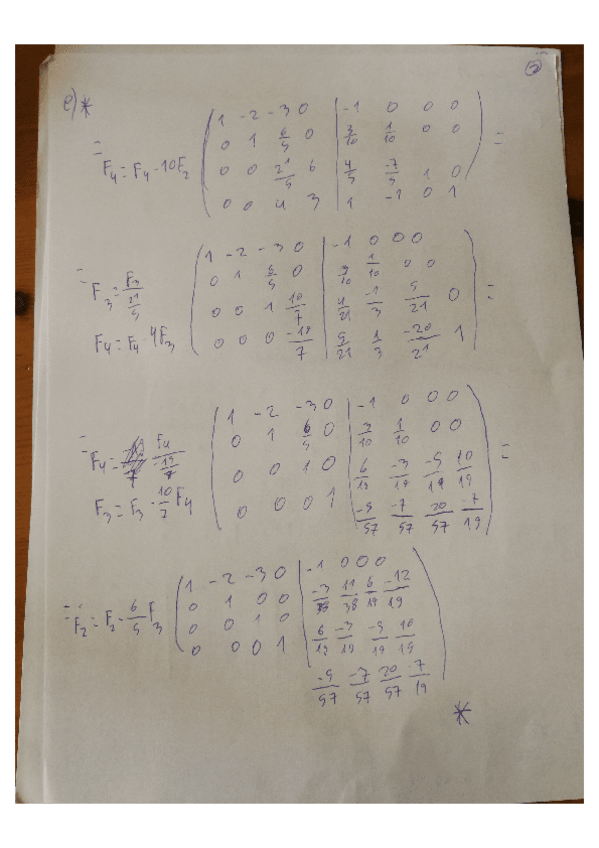 5
e)*
= F₄ = F₄ - 10F₂ ( 1 -2 -3 0 | -1 0 0 0
0 1 6/5 0 | 3/10 1/10 0 0
0 0 21/5 6 | 4/5 -7/5 1 0
0 0 4 3 | 1 -1 0 1 ) =
= F₃ = F₃/(21/5) F₄ = F₄ - 4F₃ ( 1 -2 -3 0 | -1 0 0 0
0 1 6/5 0 | 3/10 1/10 0 0
0 0 1 10/7 | 4/21 -1/3 5/21 0
0 0 0 -19/7 | 5/21 1/3 -20/21 1 ) =
= F₄ = F₄/(-19/7) F₃ = F₃ - 10/7 F₄ ( 1 -2 -3 0 | -1 0 0 0
0 1 6/5 0 | 3/10 1/10 0 0
0 0 1 0 | 6/19 -3/19 -5/19 10/19
0 0 0 1 | -5/57 -7/57 20/57 -7/19 ) =
= F₂ = F₂ - 6/5 F₃ ( 1 -2 -3 0 | -1 0 0 0
0 1 0 0 | -3/38 11/38 6/19 -12/19
0 0 1 0 | 6/19 -3/19 -5/19 10/19
0 0 0 1 | -5/57 -7/57 20/57 -7/19 )
*